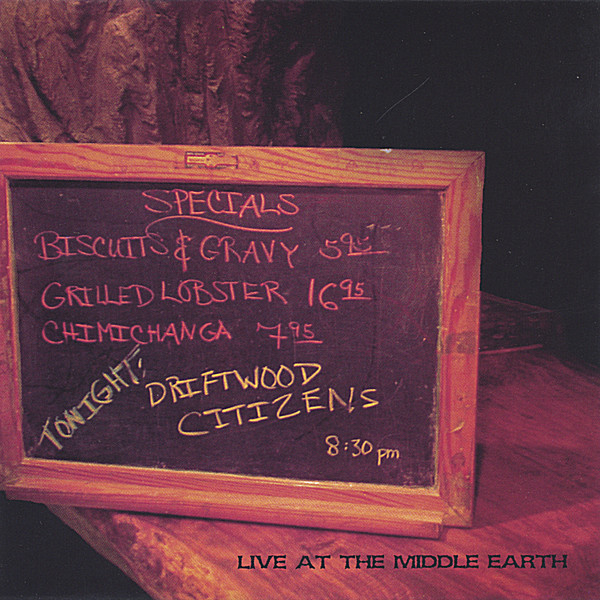 SPECIALS
BISCUITS & GRAVY 5.95
GRILLED LOBSTER 16 95
CHIMICHANGA 7 95
TONIGHT:
DRIFTWOOD
CITIZENS
8:30 pm
LIVE AT THE MIDDLE EARTH